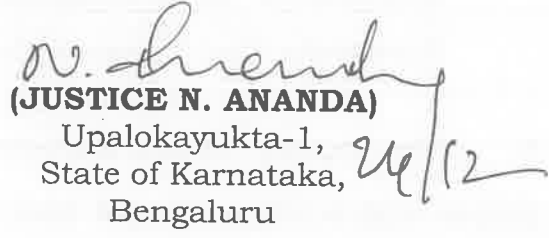 N. Ananda
(JUSTICE N. ANANDA)
Upalokayukta-1,
State of Karnataka, 26/12
Bengaluru